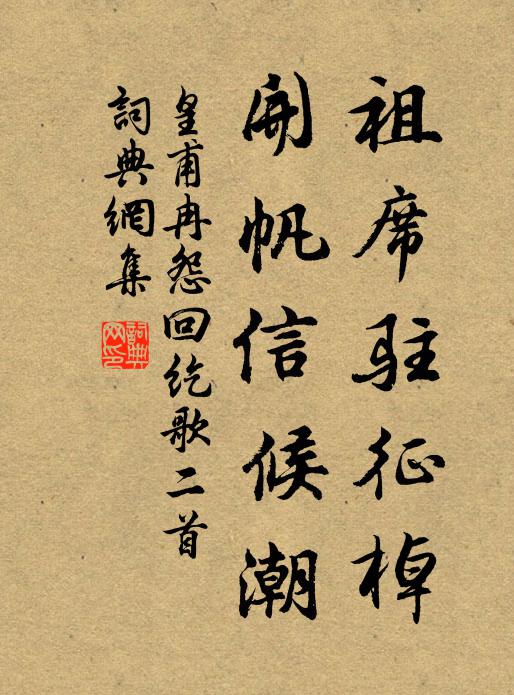 祖席駐征棹
開帆信候潮
皇甫冉怨回紇歌二首
詞典網集
詞典網印